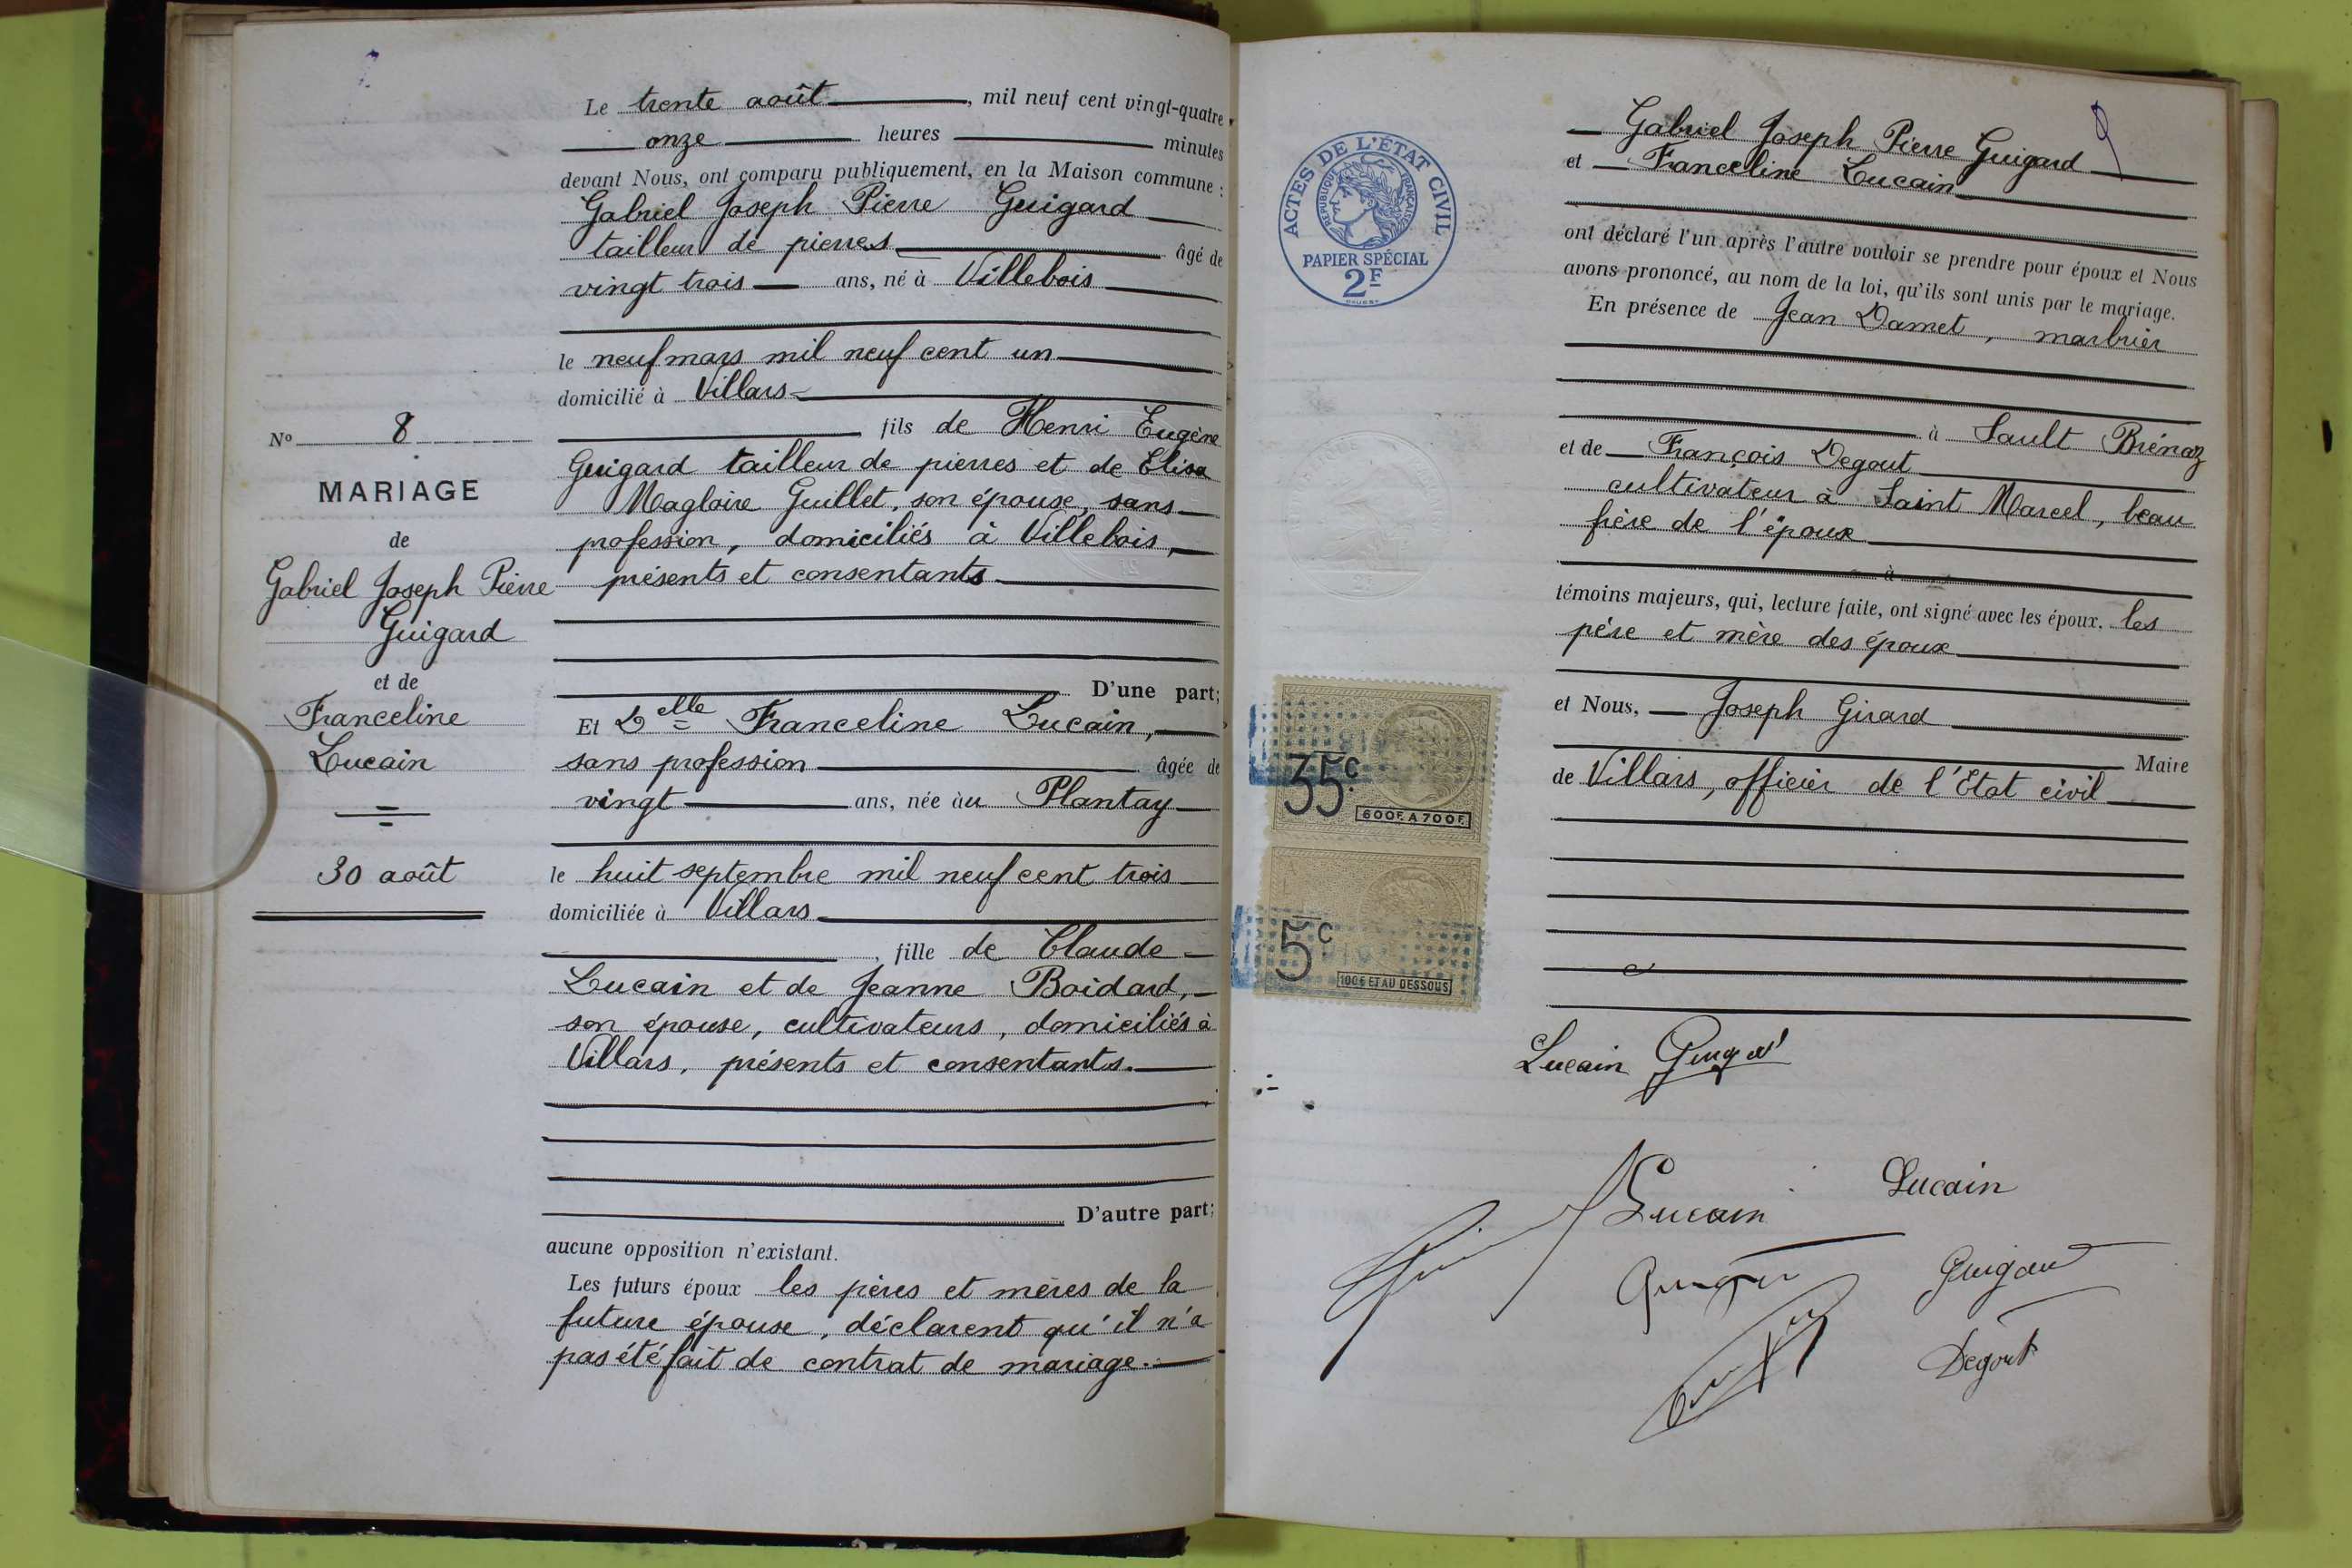 Le trente août, mil neuf cent vingt-quatre
onze heures minutes
devant Nous, ont comparu publiquement, en la Maison commune :
Gabriel Joseph Pierre Guigard
tailleur de pierres âgé de
vingt trois ans, né à Villebois
le neuf mars mil neuf cent un
domicilié à Villars
fils de Henri Eugène
Guigard tailleur de pierres et de Elisa
Magloire Guillet, son épouse, sans
profession, domiciliés à Villebois,
présents et consentants
D'une part;
Et Delle Franceline Lucain,
sans profession âgée de
vingt ans, née àu Plantay
le huit septembre mil neuf cent trois
domiciliée à Villars
, fille de Claude
Lucain et de Jeanne Boidard,
son épouse, cultivateurs, domiciliés à
Villars, présents et consentants.
D'autre part;
aucune opposition n'existant.
Les futurs époux les pères et mères de la
future épouse, déclarent qu'il n'a
pas été fait de contrat de mariage.
No 8
MARIAGE
de
Gabriel Joseph Pierre
Guigard
et de
Franceline
Lucain
30 août
Gabriel Joseph Pierre Guigard
et Franceline Lucain
ont déclaré l'un après l'autre vouloir se prendre pour époux et Nous
avons prononcé, au nom de la loi, qu'ils sont unis par le mariage.
En présence de Jean Damet, marbrier
à Sault Brénaz
et de François Degout
cultivateur à Saint Marcel, beau
frère de l'époux
à
témoins majeurs, qui, lecture faite, ont signé avec les époux, les
père et mère des époux
et Nous, Joseph Girard
Maire
de Villars, officier de l'Etat civil
ACTES DE L'ÉTAT CIVIL
RÉPUBLIQUE FRANÇAISE
PAPIER SPÉCIAL
2F
35c
600F. A 700F.
5c
100F ET AU DESSOUS
Lucain Guigard
Lucain
Lucain
Guigard
Degout